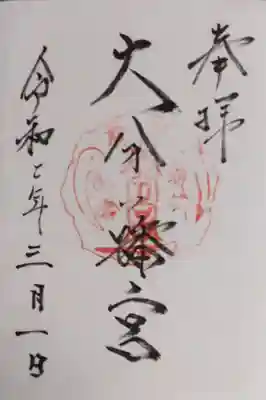 奉拝
大分八幡宮
令和七年三月一日